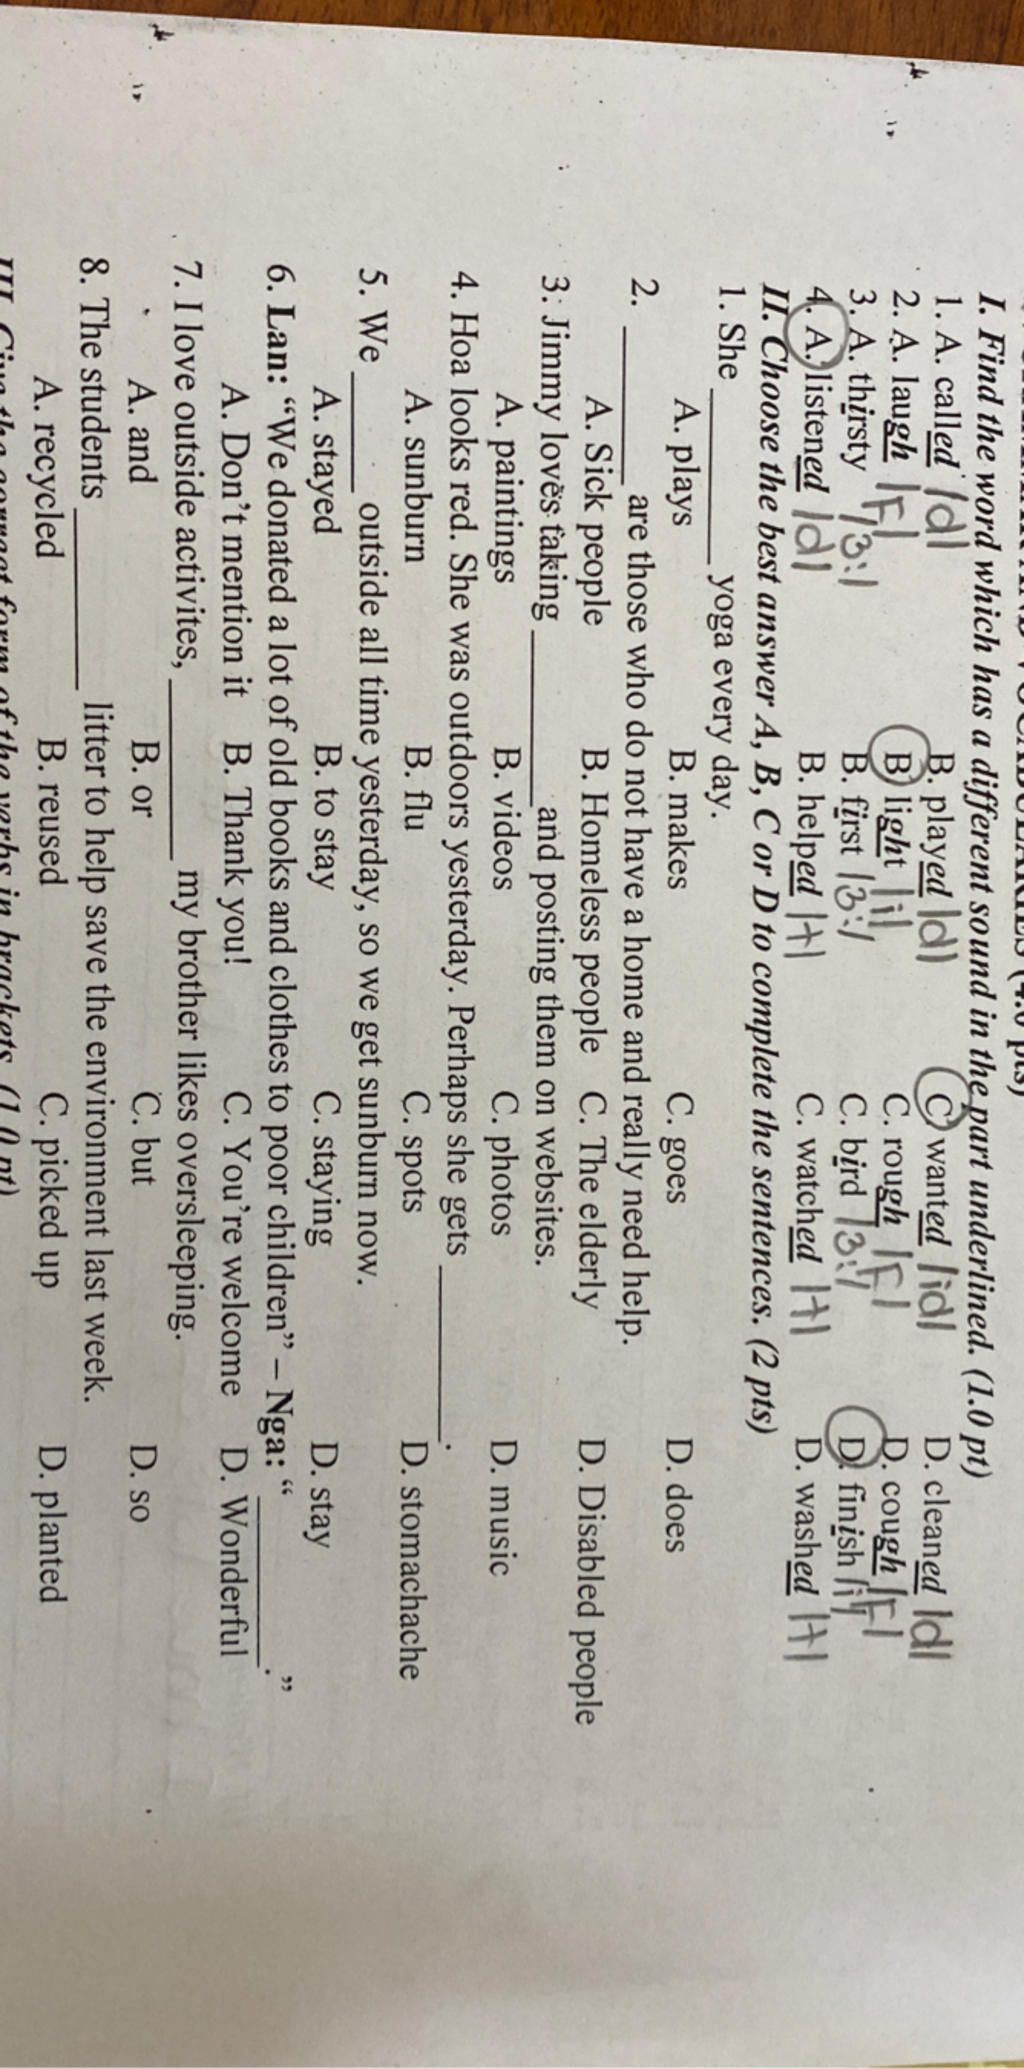 I. Find the word which has a different sound in the part underlined. (1.0 pt)
1. A. called /d/ B. played /d/ C. wanted /id/ D. cleaned /d/
2. A. laugh /f/ B. light /i/ C. rough /f/ D. cough /f/
3. A. thirsty /3:/ B. first /3:/ C. bird /3:/ D. finish /i/
4. A. listened /d/ B. helped /t/ C. watched /t/ D. washed /t/
II. Choose the best answer A, B, C or D to complete the sentences. (2 pts)
1. She ________ yoga every day.
A. plays B. makes C. goes D. does
2. ________ are those who do not have a home and really need help.
A. Sick people B. Homeless people C. The elderly D. Disabled people
3. Jimmy loves taking ________ and posting them on websites.
A. paintings B. videos C. photos D. music
4. Hoa looks red. She was outdoors yesterday. Perhaps she gets ________.
A. sunburn B. flu C. spots D. stomachache
5. We ________ outside all time yesterday, so we get sunburn now.
A. stayed B. to stay C. staying D. stay
6. Lan: “We donated a lot of old books and clothes to poor children” – Nga: “________.”
A. Don’t mention it B. Thank you! C. You’re welcome D. Wonderful
7. I love outside activites, ________ my brother likes oversleeping.
A. and B. or C. but D. so
8. The students ________ litter to help save the environment last week.
A. recycled B. reused C. picked up D. planted
III. Give the correct form of the verbs in brackets. (1.0 pt)